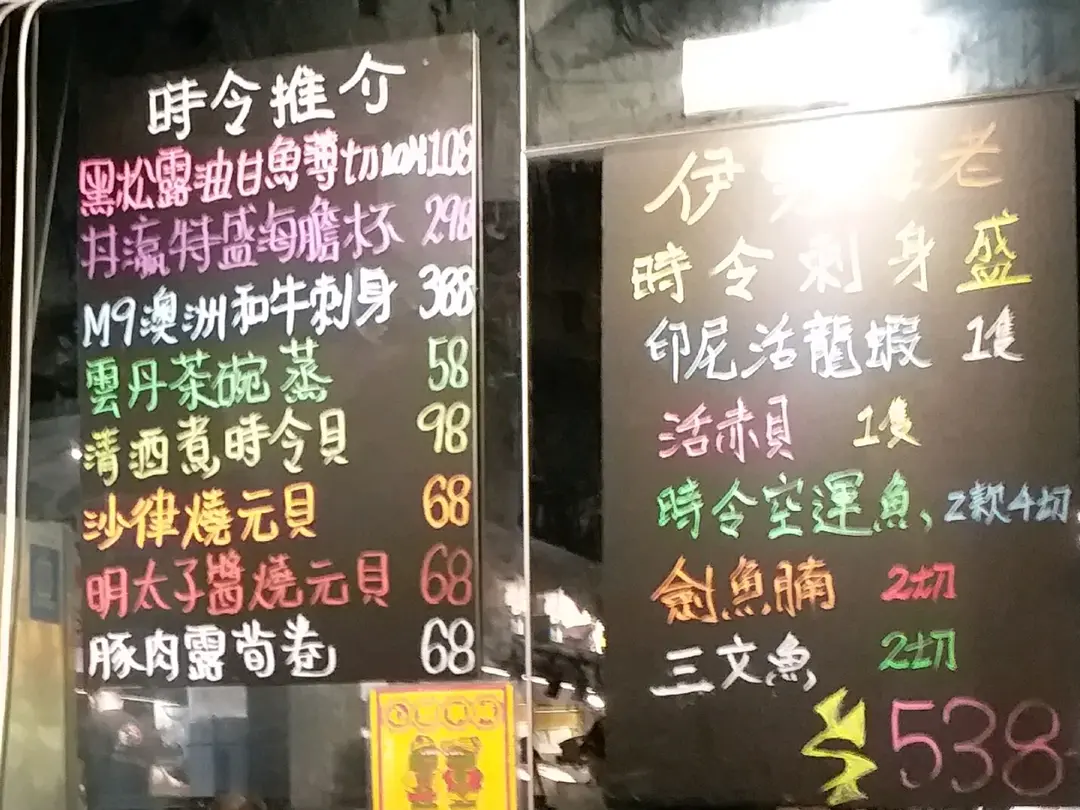 時令推介
黑松露油甘魚薄切10片108
丼瀛特盛海膽杯 298
M9澳洲和牛刺身 388
雲丹茶碗蒸 58
清酒煮時令貝 98
沙律燒元貝 68
明太子醬燒元貝 68
豚肉露荀卷 68
伊 老
時令刺身盛
印尼活龍蝦 1隻
活赤貝 1隻
時令空運魚、2款4切
劍魚腩 2切
三文魚 2切
$538